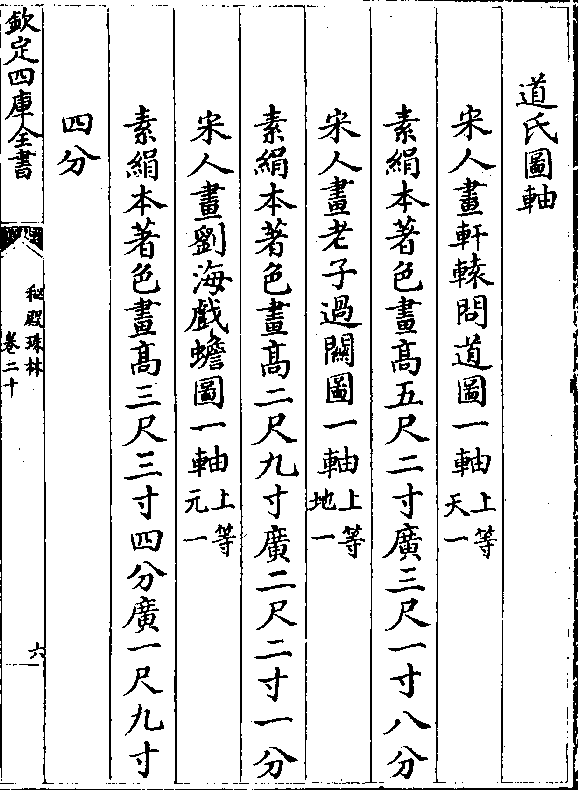 道氏圖軸
宋人畫軒轅問道圖一軸上等天一
素絹本著色畫髙五尺二寸廣三尺一寸八分
宋人畫老子過關圖一軸上等地一
素絹本著色畫髙二尺九寸廣二尺二寸一分
宋人畫劉海戲蟾圖一軸上等元一
素絹本著色畫髙三尺三寸四分廣一尺九寸
四分
欽定四庫全書
秘殿珠林
卷二十
六